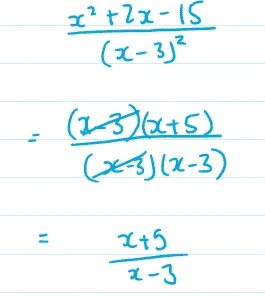 x² + 2x - 15
(x - 3)²
= (x - 3)(x + 5)
(x - 3)(x - 3)
= x + 5
x - 3